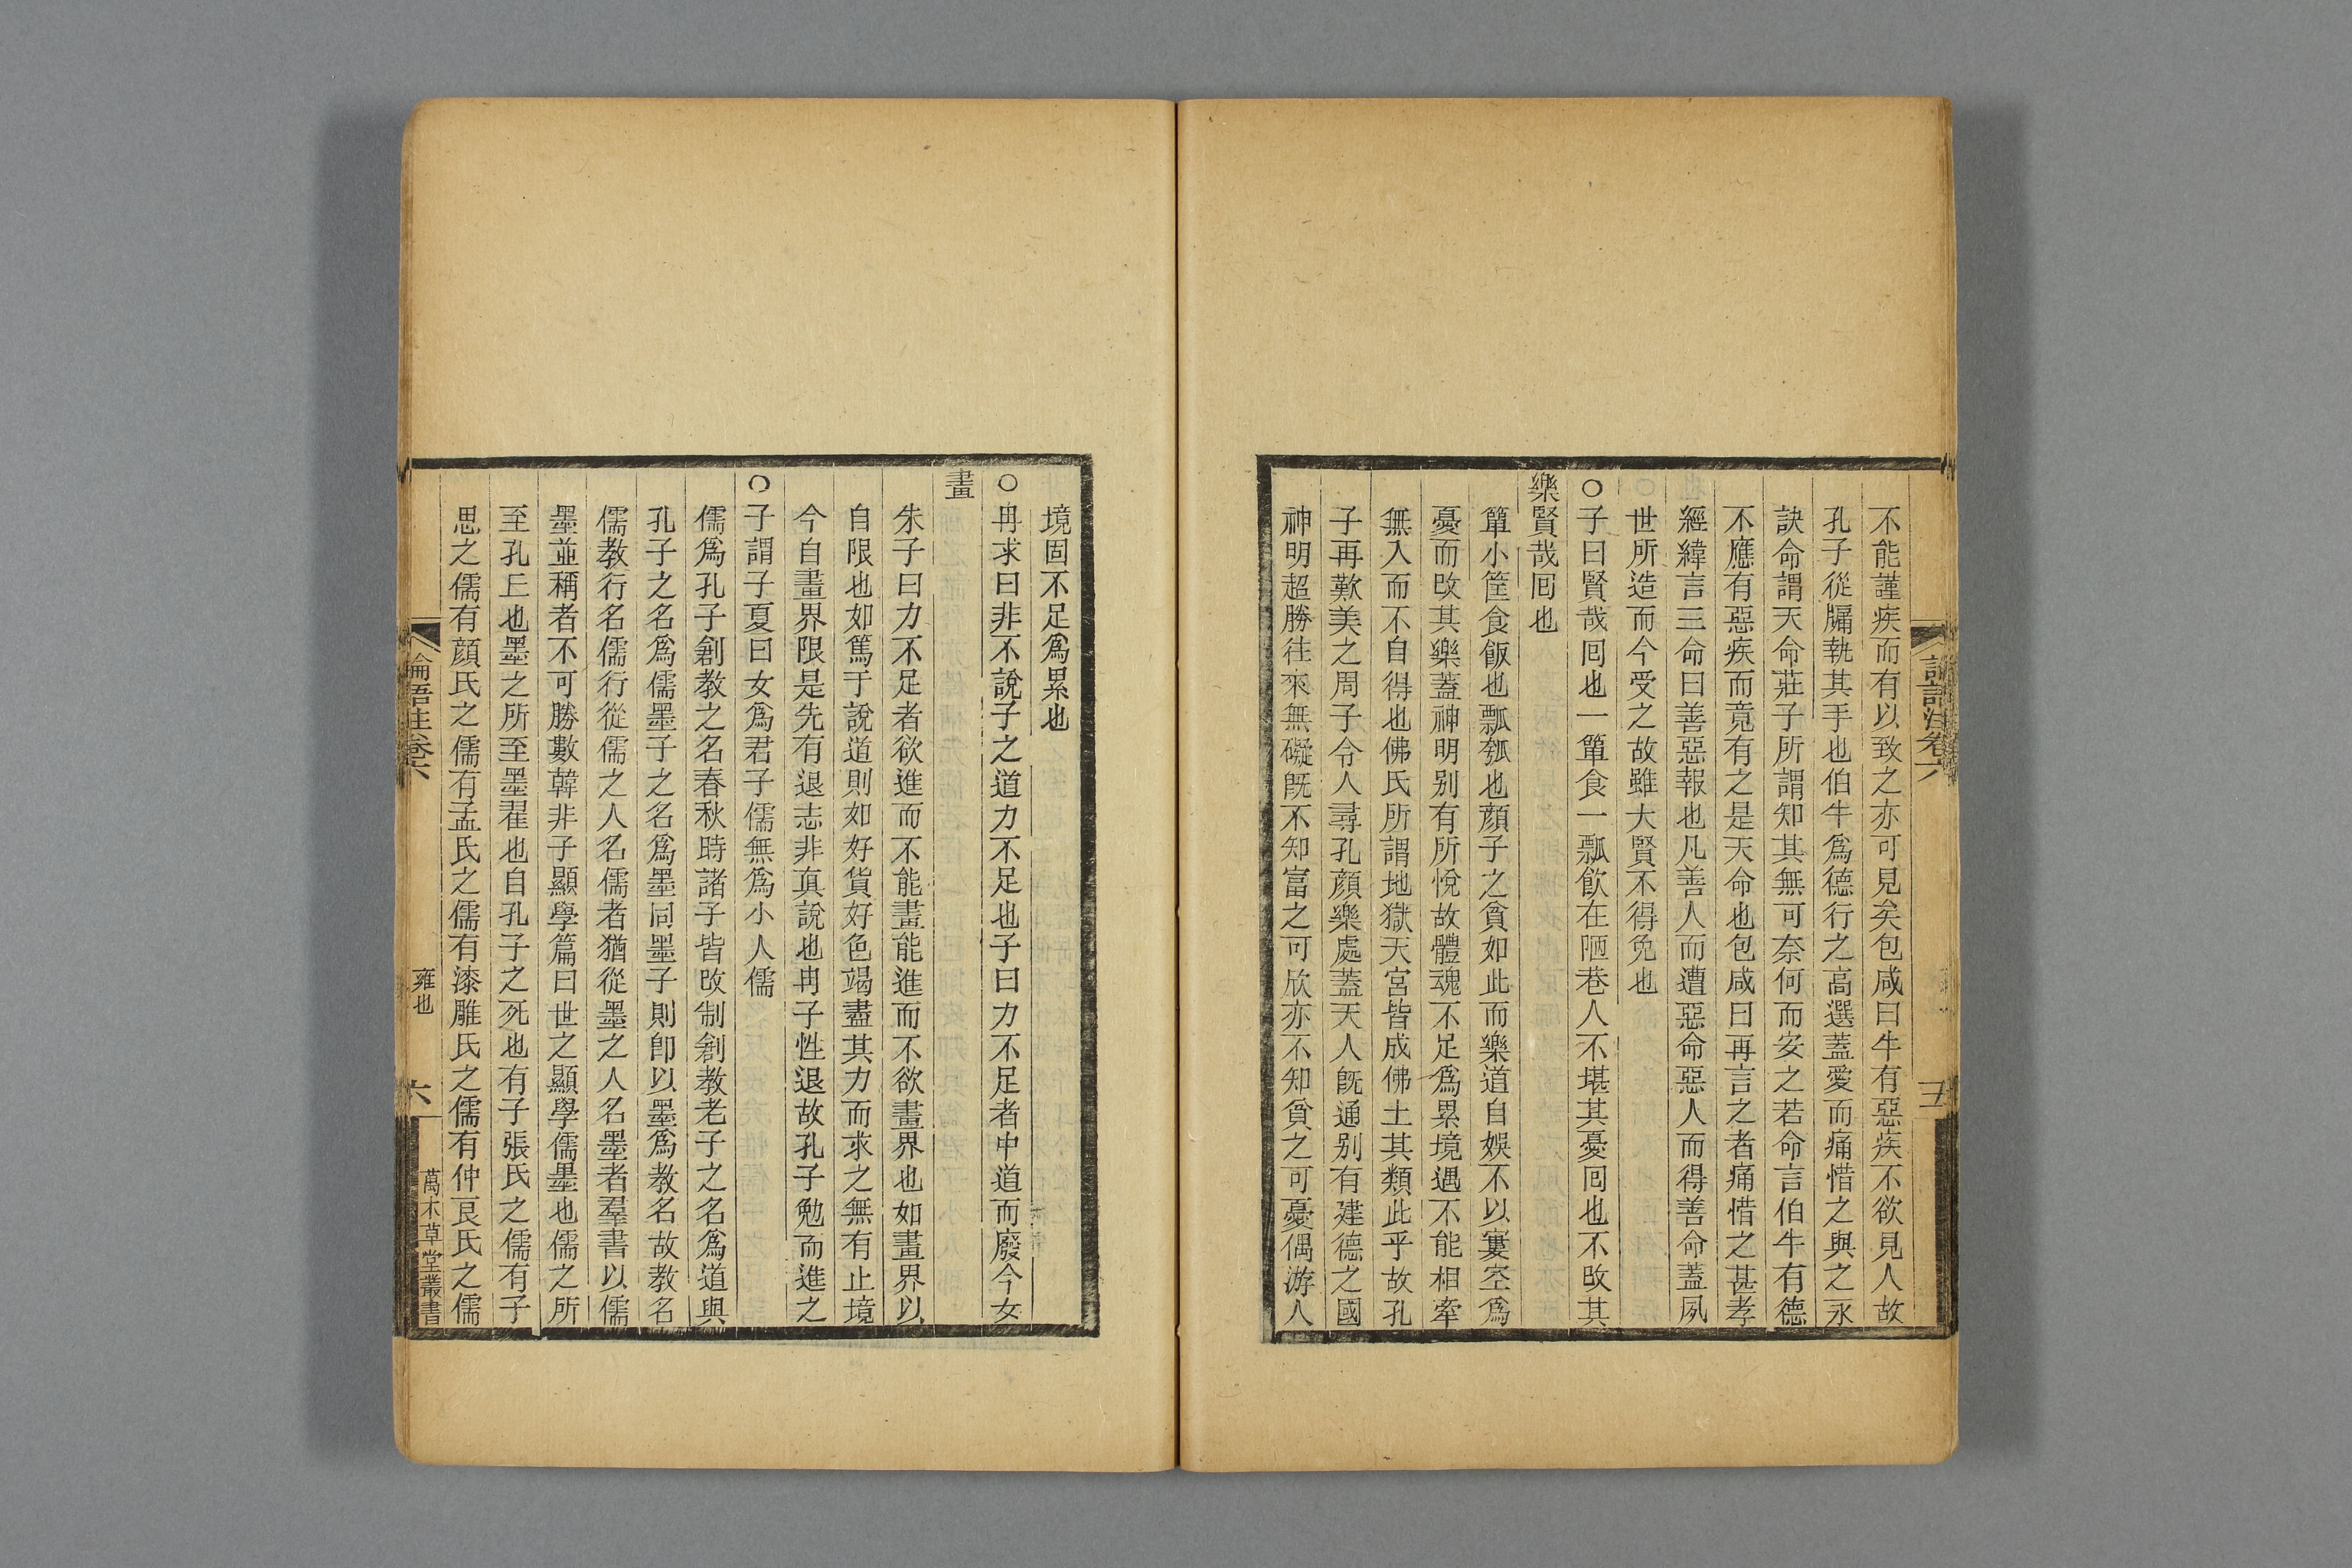 論語注卷六
五
不能謹疾而有以致之亦可見矣包咸曰牛有惡疾不欲見人故
孔子從牖執其手也伯牛爲德行之高選蓋愛而痛惜之與之永
訣命謂天命莊子所謂知其無可奈何而安之若命言伯牛有德
不應有惡疾而竟有之是天命也包咸曰再言之者痛惜之甚孝
經緯言三命曰善惡報也凡善人而遭惡命惡人而得善命蓋夙
世所造而今受之故雖大賢不得免也
○子曰賢哉回也一簞食一瓢飲在陋巷人不堪其憂回也不改其
樂賢哉回也
簞小筐食飯也瓢瓠也顏子之貧如此而樂道自娛不以寠空爲
憂而改其樂蓋神明别有所悅故體魂不足爲累境遇不能相牽
無入而不自得也佛氏所謂地獄天宮皆成佛土其類此乎故孔
子再歎美之周子令人尋孔顏樂處蓋天人旣通别有建德之國
神明超勝往來無礙旣不知富之可欣亦不知貧之可憂偶游人
境固不足爲累也
○冉求曰非不說子之道力不足也子曰力不足者中道而廢今女
畫
朱子曰力不足者欲進而不能畫能進而不欲畫界也如畫界以
自限也如篤于說道則如好貨好色竭盡其力而求之無有止境
今自畫界限是先有退志非真說也冉子性退故孔子勉而進之
○子謂子夏曰女爲君子儒無爲小人儒
儒爲孔子創教之名春秋時諸子皆改制創教老子之名爲道與
孔子之名爲儒墨子之名爲墨同墨子則卽以墨爲教名故教名
儒教行名儒行從儒之人名儒者猶從墨之人名墨者羣書以儒
墨並稱者不可勝數韓非子顯學篇曰世之顯學儒墨也儒之所
至孔丘也墨之所至墨翟也自孔子之死也有子張氏之儒有子
思之儒有顏氏之儒有孟氏之儒有漆雕氏之儒有仲良氏之儒
論語注卷六
雍也
六
萬木草堂叢書